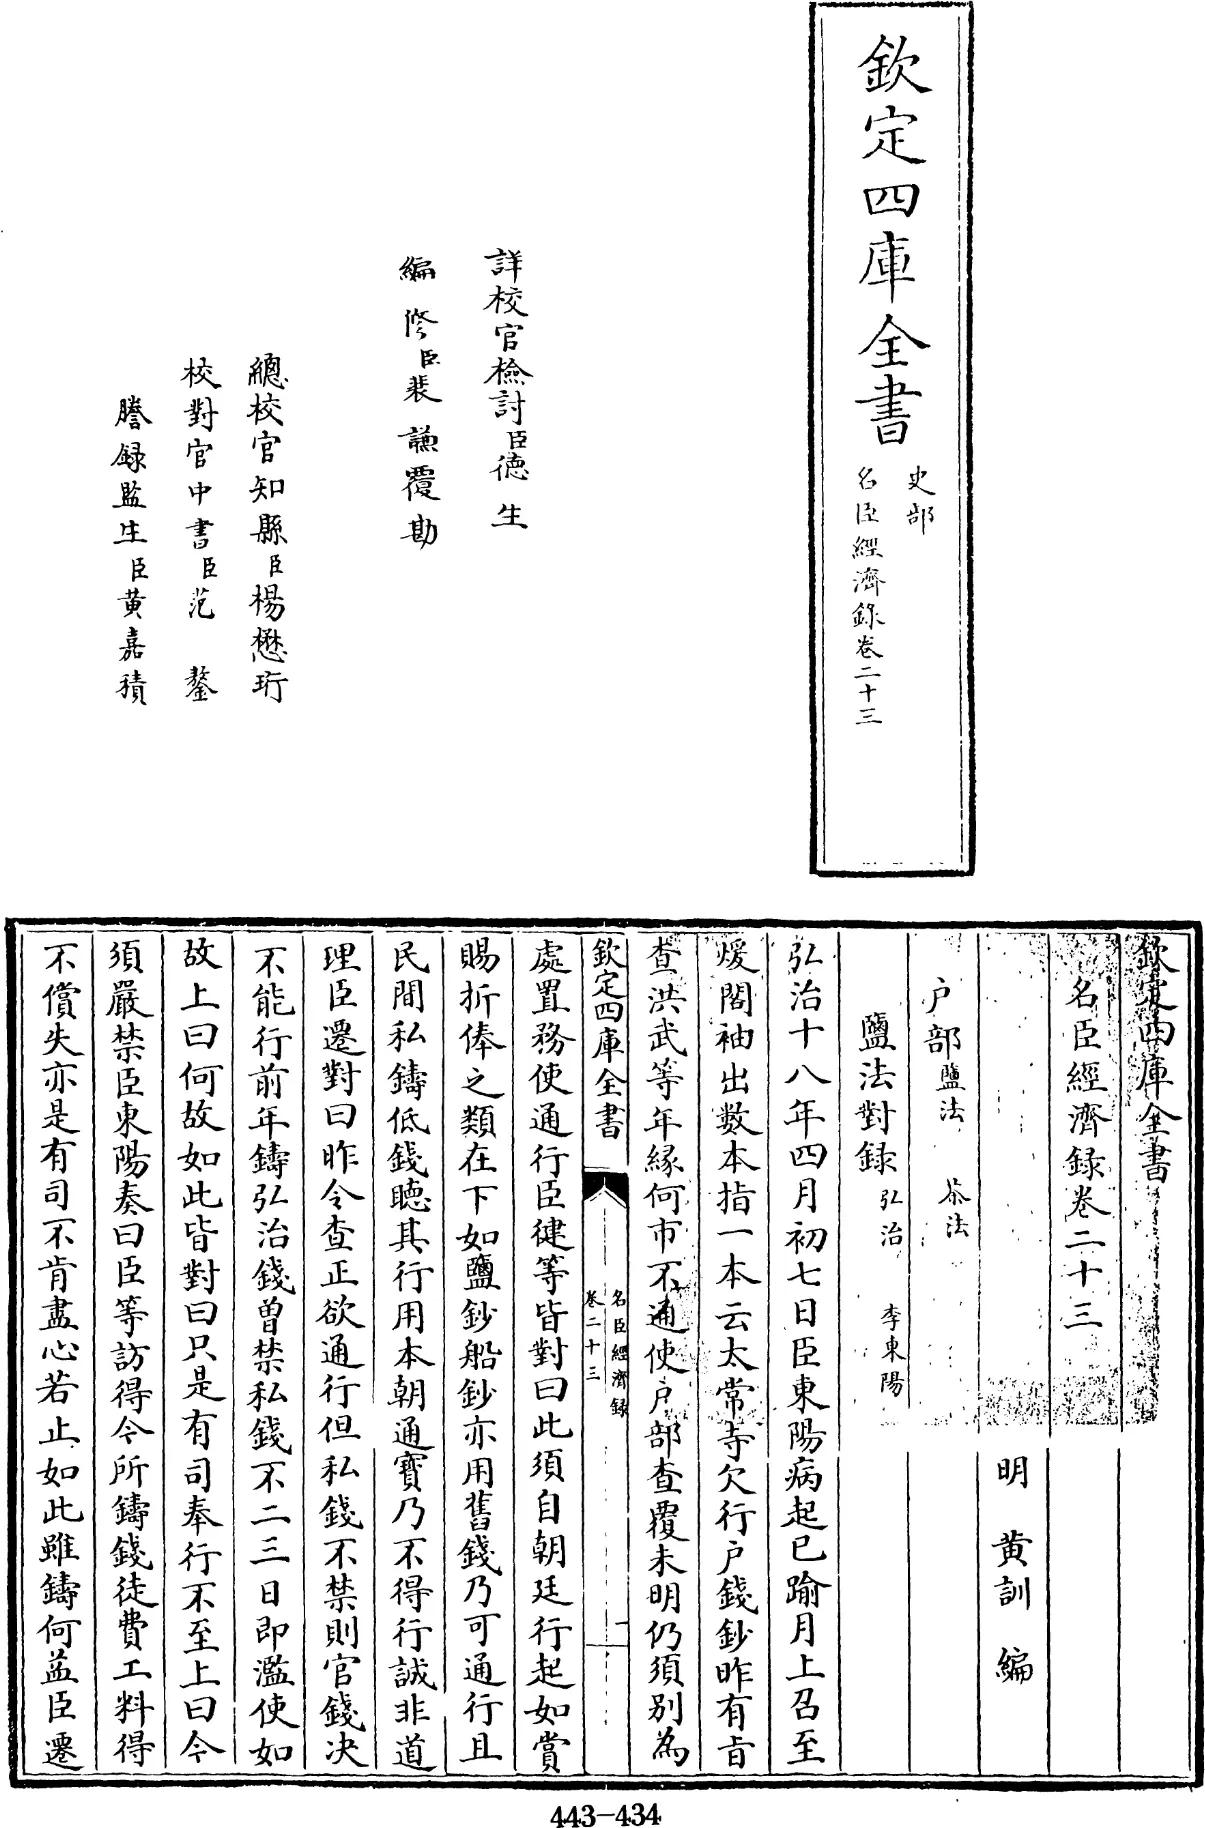 欽定四庫全書
史部
名臣經濟錄卷二十三
詳校官檢討臣德生
編修臣裴謙覆勘
總校官知縣臣楊懋珩
校對官中書臣范鏊
謄錄監生臣黃嘉積
欽定四庫全書
名臣經濟録卷二十三
明 黃訓 編
户部鹽法 茶法
鹽法對録弘治 李東陽
弘治十八年四月初七日臣東陽病起已踰月上召至
煖閣袖出数本指一本云太常寺欠行户錢鈔昨有㫖
查洪武等年緣何市不通使户部查覆未明仍須別為
欽定四庫全書
名臣經濟録
卷二十三
一
處置務使通行臣健等皆對曰此須自朝廷行起如賞
賜折俸之類在下如鹽鈔船鈔亦用舊錢乃可通行且
民間私鑄低錢聽其行用本朝通寳乃不得行誠非道
理臣遷對曰昨令查正欲通行但私錢不禁則官錢决
不能行前年鑄弘治錢曽禁私錢不二三日即濫使如
故上曰何故如此皆對曰只是有司奉行不至上曰今
須嚴禁臣東陽奏曰臣等訪得今所鑄錢徒費工料得
不償失亦是有司不肯盡心若止如此雖鑄何益臣遷
443-434